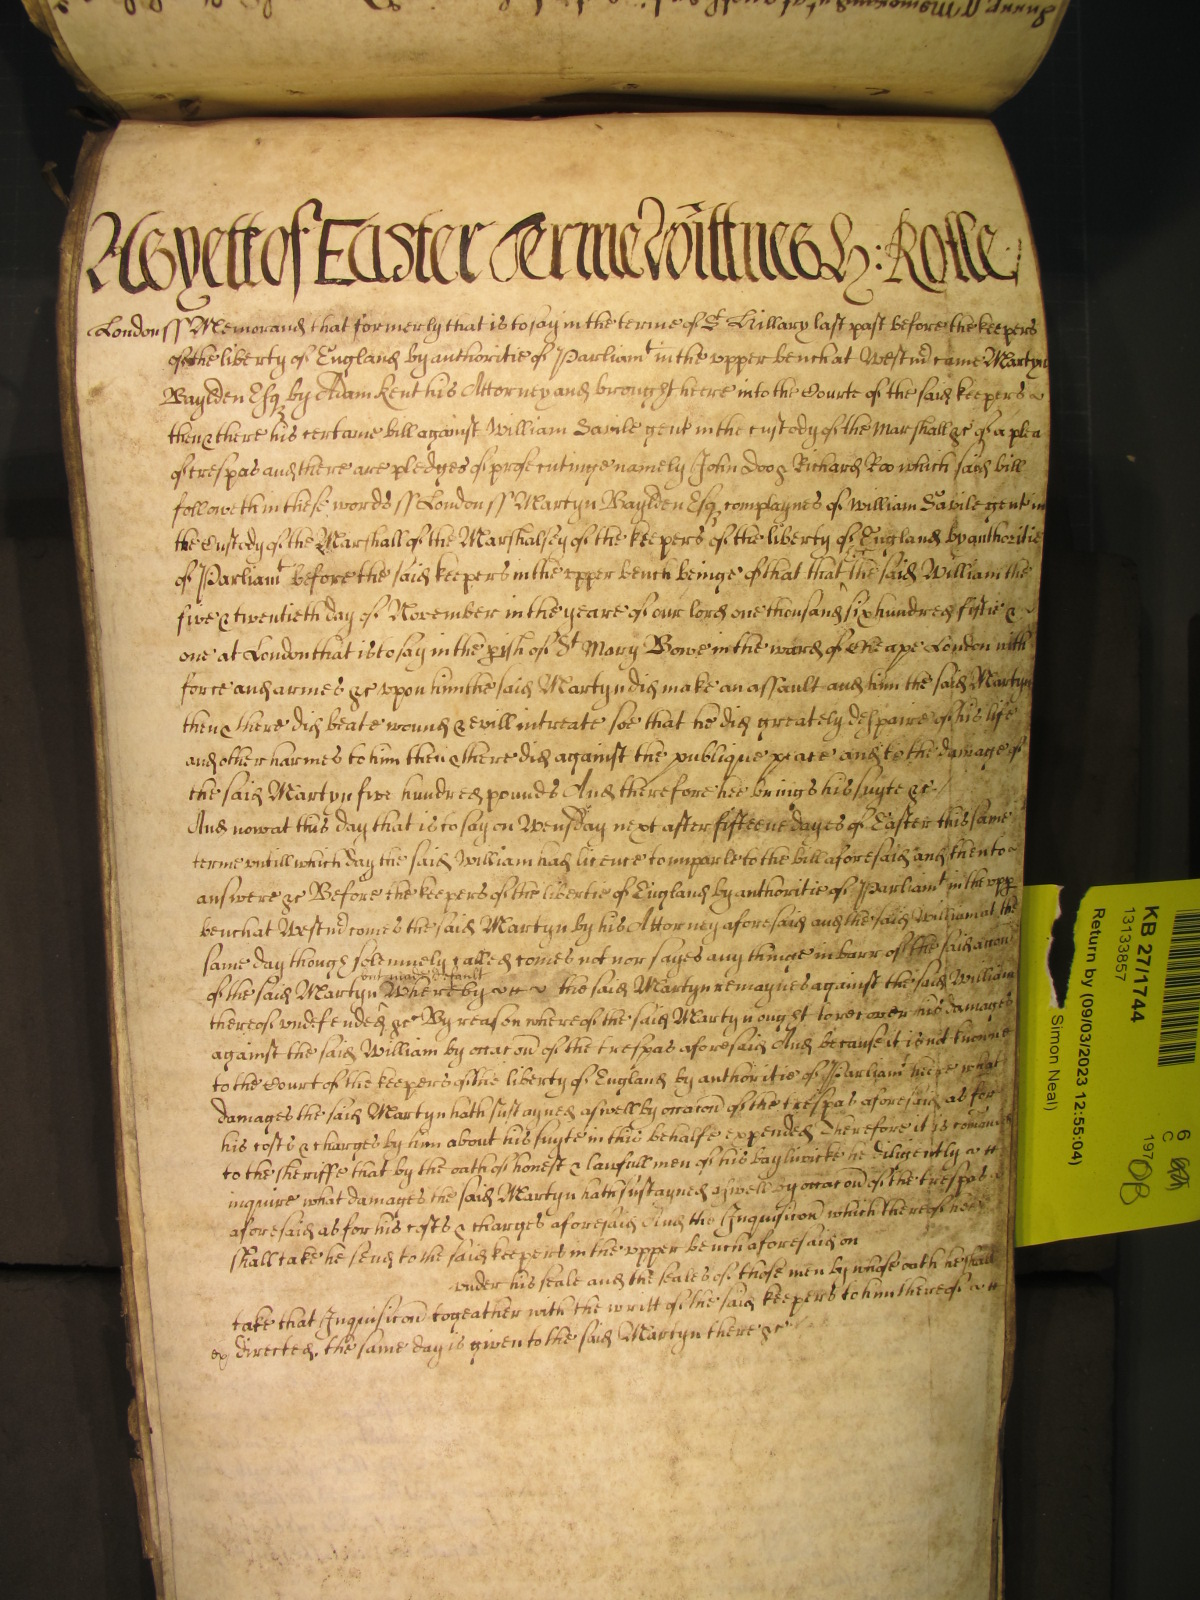 As yett of Easter Terme Wittnes H: Rolle
London ss Memorand that formerly that is to say in the terme of St Hillary last past before the keepers
of the liberty of England by authoritie of Parliamt in the upper bench at Westmr came Martyn
Baylden Esq by Adam Kent his Attorney and brought heere into the Courte of the said keepers
then & there his certaine bill against William Savile gent in the custody of the Marshall &c of a plea
of trespas and there are pledges of prosecutinge namely John Doo & Richard Roo which said bill
followeth in these words ss London ss Martyn Baylden Esq complaynes of William Savile gent in
the Custody of the Marshall of the Marshalsey of the keepers of the liberty of England by authoritie
of Parliamt before the said keepers in the upper bench beinge of that that the said William the
five & twentieth day of November in the yeare of our lord one thousand six hundred fiftie &
one at London that is to say in the pish of St Mary Bowe in the ward of Cheape London with
force and armes &c upon him the said Martyn did make an assault and him the said Martyn
then & there did beate wound & evill intreate soe that he did greately despaire of his life
and other harmes to him then & there did against the publique peace and to the damage of
the said Martyn five hundred pounds And therefore hee brings his suyte &c
And now at this day that is to say on Wensday next after fifteene dayes of Easter this same
terme untill which day the said William had licence to imparle to the bill aforesaid and then to
answere &c Before the keepers of the libertie of England by authoritie of Parliamt in the upp
bench at Westmr comes the said Martyn by his Attorney aforesaid and the said William at the
same day though solemnely called comes not nor sayes any thinge in barr of the said accon
but made default
of the said Martyn Whereby the said Martyn remaynes against the said William
thereof undefended &c By reason whereof the said Martyn ought to recover his damages
against the said William by occacon of the trespas aforesaid And because it is not knowne
to the Court of the keepers of the liberty of England by authoritie of Parliamt heere what
damages the said Martyn hath sustayned aswell by occacon of the trespas aforesaid as for
his costs & charges by him about his suyte in this behalfe expended Therefore it is comand
to the sheriffe that by the oath of honest & lawfull men of his baylywicke he diligently
inquire what damages the said Martyn hath sustayned aswell by occacon of the trespas
aforesaid as for his costs & charges aforesaid And the Inquisicon which thereof hee
shall take he send to the said keepers in the upper bench aforesaid on
under his seale and the seales of those men by whose oath he shall
take that Inquisicon togeather with the writt of the said keepers to him thereof
directed, the same day is given to the said Martyn there &c
KB 27/1744
13133857
Return by (09/03/2023 12:55:04)
Simon Neal)
6
C
197